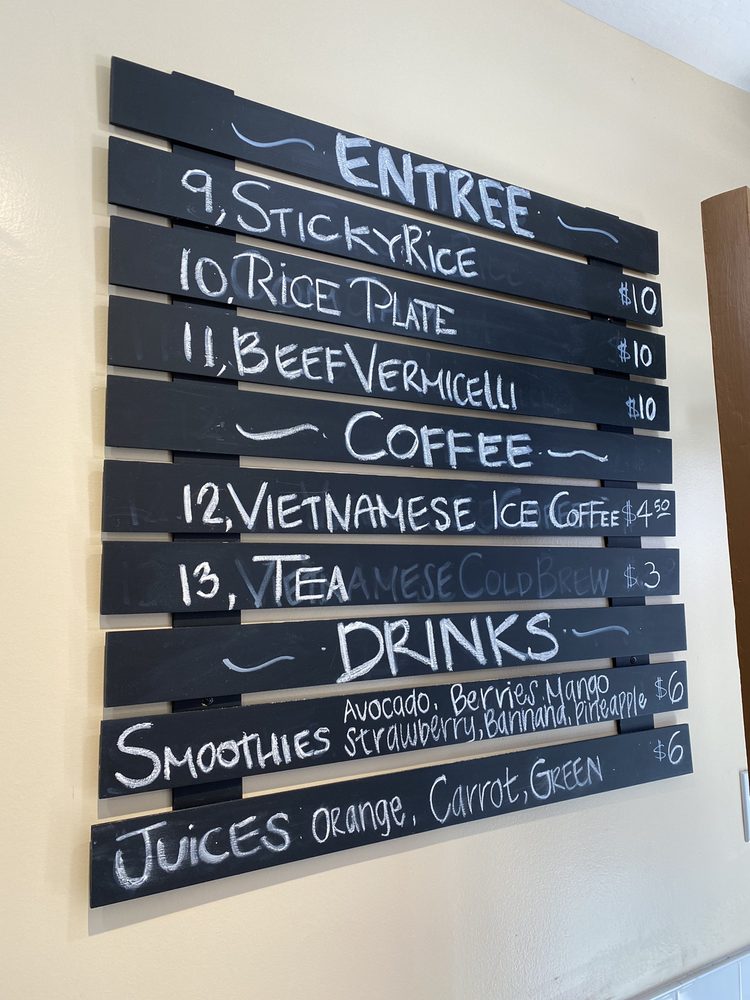 ENTREE
9, STICKY RICE $10
10, RICE PLATE $10
11, BEEF VERMICELLI $10
COFFEE
12, VIETNAMESE ICE COFFEE $4.50
13, TEA $3
DRINKS
SMOOTHIES Avocado, Berries, Mango
Strawberry, Bannana, Pineapple $6
JUICES Orange, Carrot, GREEN $6